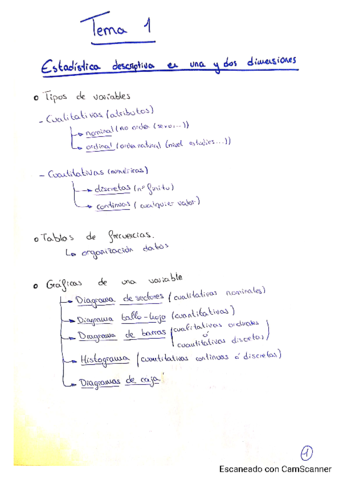 Tema 1
Estadística descriptiva en una y dos dimensiones
Tipos de variables
- Cualitativas (atributos)
nominal (no orden (sexo...))
ordinal (orden natural (nivel estudios...))
- Cuantitativas (numéricas)
discretas (nº finito)
continuas (cualquier valor)
Tablas de frecuencias.
organización datos
Gráficas de una variable
Diagrama de sectores (cualitativas nominales)
Diagrama tallo-hoja (cuantitativas)
Diagrama de barras (cualitativas ordinales
ó
cuantitativas discretas)
Histograma (cuantitativas continuas ó discretas)
Diagramas de caja
1
Escaneado con CamScanner